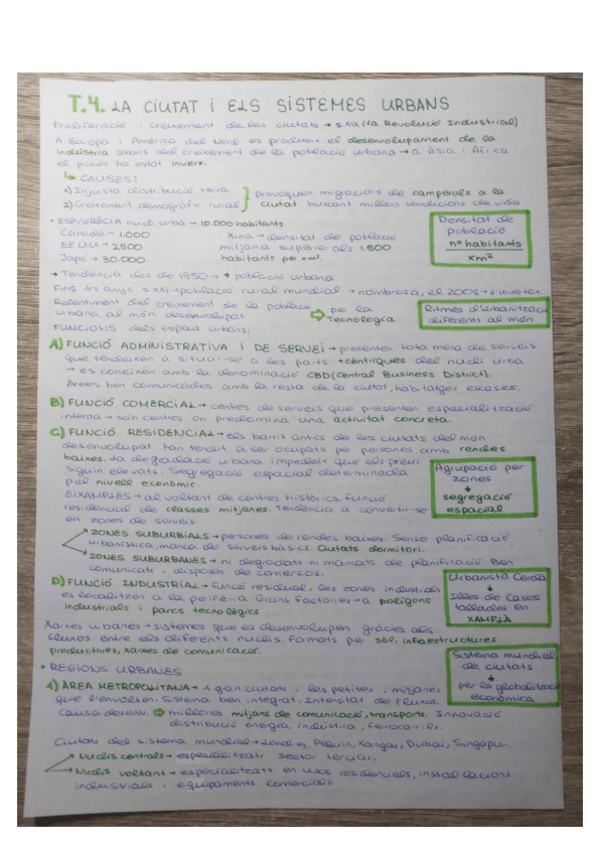 T.4. LA CIUTAT I ELS SISTEMES URBANS
Proliferació i creixement de les ciutats → s.XIX (la Revolució Industrial)
A Europa i Amèrica del Nord es produeix el desenvolupament de la
indústria abans del creixement de la població urbana → a Àsia i Àfrica
el procés ha estat invers.
↳ CAUSES:
1) Injusta distribució terra
2) Creixement demogràfic rural
provoquen migracions de camperols a la
ciutat buscant millors condicions de vida
• ESP/GRÈCIA nucli urbà → 10.000 habitants
Canadà → 1.000
EEUU → 2500
Japó → 30.000
Xina → densitat de població
mitjana superior als 1.500
habitants per km².
Densitat de
població
nº habitants
km²
→ Tendència des de 1950 → ↑ població urbana
Fins anys s.XXI → població rural mundial → nombrosa, el 2008 → s'inverteix
Relentiment del creixement de la població
urbana al món desenvolupat
⇒ per la
tecnologia
Ritmes d'urbanització
diferents al món
FUNCIONS dels espais urbans:
A) FUNCIÓ ADMINISTRATIVA I DE SERVEI → presenten tota mena de serveis
que tendeixen a situar-se a les parts +cèntriques del nucli urbà
→ es coneixen amb la denominació CBD (Central Business District).
Àrees ben comunicades amb la resta de la ciutat, habitatges escasos.
B) FUNCIÓ COMERCIAL → centres de serveis que presenten especialització
interna → són centres on predomina una activitat concreta.
C) FUNCIÓ RESIDENCIAL → els barris antics de les ciutats del món
desenvolupat han tendit a ser ocupats per persones amb rendes
baixes. La degradació urbana impedeix que els preus
siguin elevats. Segregació espacial determinada
pel nivell econòmic.
Agrupació per
zones
↓
segregació
espacial
EIXAMPLES → al voltant de centres històrics, funció
residencial de classes mitjanes. Tendència a convertir-se
en zones de serveis.
ZONES SUBURBIALS → persones de rendes baixes. Sense planificació
urbanística, manca de serveis bàsics. Ciutats dormitori.
ZONES SUBURBANES → ni degradats ni mancats de planificació. Ben
comunicats i disposen de comerços.
D) FUNCIÓ INDUSTRIAL → Funció residual, les zones industrials
es localitzen a la perifèria. Grans Factories → a polígons
industrials i parcs tecnològics
Urbanista Cerdà
↓
Illes de Cases
tallades en
XAMFLÀ
Xarxes urbanes → sistemes que es desenvolupen gràcies als
fluxos entre els diferents nuclis. Formats per infraestructures
productives, xarxes de comunicació.
Sistema mundial
de ciutats
↓
per la globalització
econòmica
• REGIONS URBANES
1) ÀREA METROPOLITANA → 1 gran ciutat i les petites i mitjanes
que l'envolten. Sistema ben integrat. Intensitat de fluxos.
Causa desenv. ⇒ millores mitjans de comunicació, transports. Innovació
distribució energia, indústria, ferrocarrils.
Ciutats del sistema mundial → Londres, Pequín, Xangai, Dubai, Singapur.
Nuclis centrals → especialitzats sector terciari.
Nuclis voltant → especialitzats en usos residencials, instal·lacions
industrials i equipaments comercials